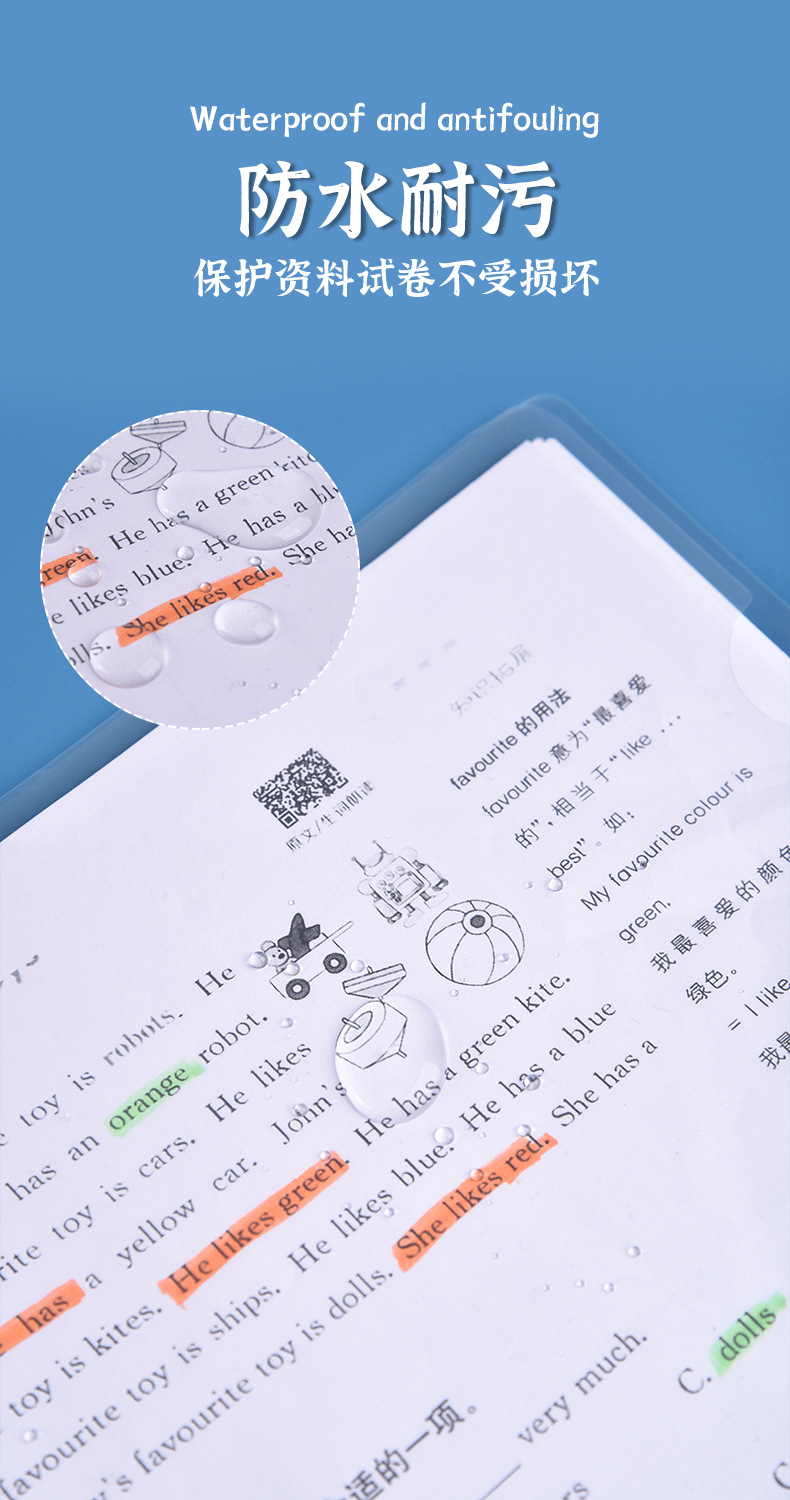 Waterproof and antifouling
防水耐污
保护资料试卷不受损坏
John's
. He has a green kite
reen. He has a
e likes blue. She ha
She likes red.
olls.
知识拓展
favourite 的用法
favourite 意为“最喜爱
的”，相当于“like ...
best”。如：
My favourite colour is
green.
我最喜爱的颜色
绿色。
= I like
我最
原文/生词朗读
toy is robots. He
has an orange robot.
toy is cars. He likes
rite toy is a yellow car. John's
He has a green kite.
has a
toy is kites. He likes green. He has a blue
toy is ships. He likes blue. She has a
favourite toy is dolls. She likes red.
适的一项。
very much.
C. dolls